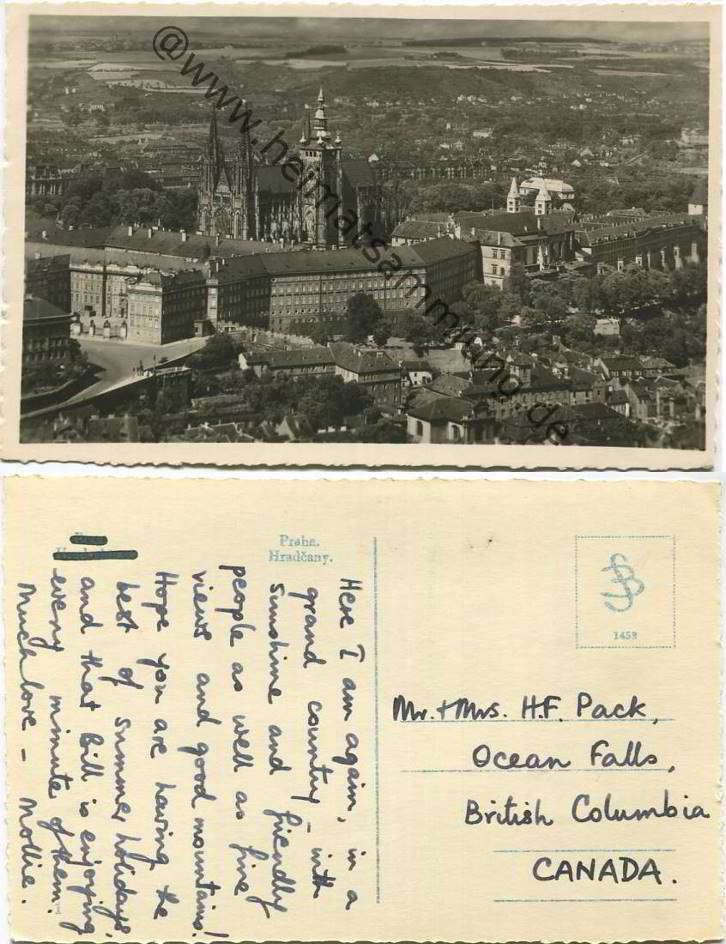 @www.heimatsammlung.de
Praha.
Hradčany.
1453
Here I am again, in a
grand country – with
sunshine and friendly
people as well as fine
views and good mountains!
Hope you are having the
best of summer holidays,
and that Bill is enjoying
every minute of them.
Much love – Mollie.
Mr. + Mrs. H.F. Pack,
Ocean Falls,
British Columbia
CANADA.